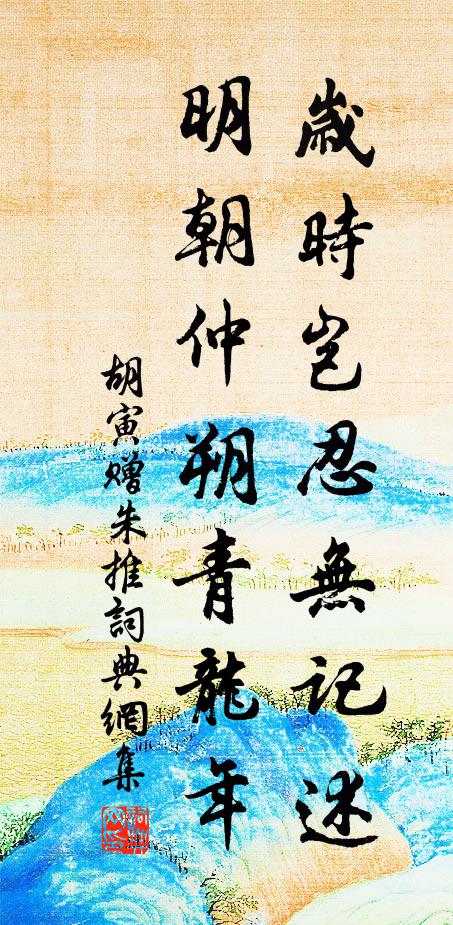 歲時豈忍無記述
明朝仲朔青龍年
胡寅贈朱推詞典網集